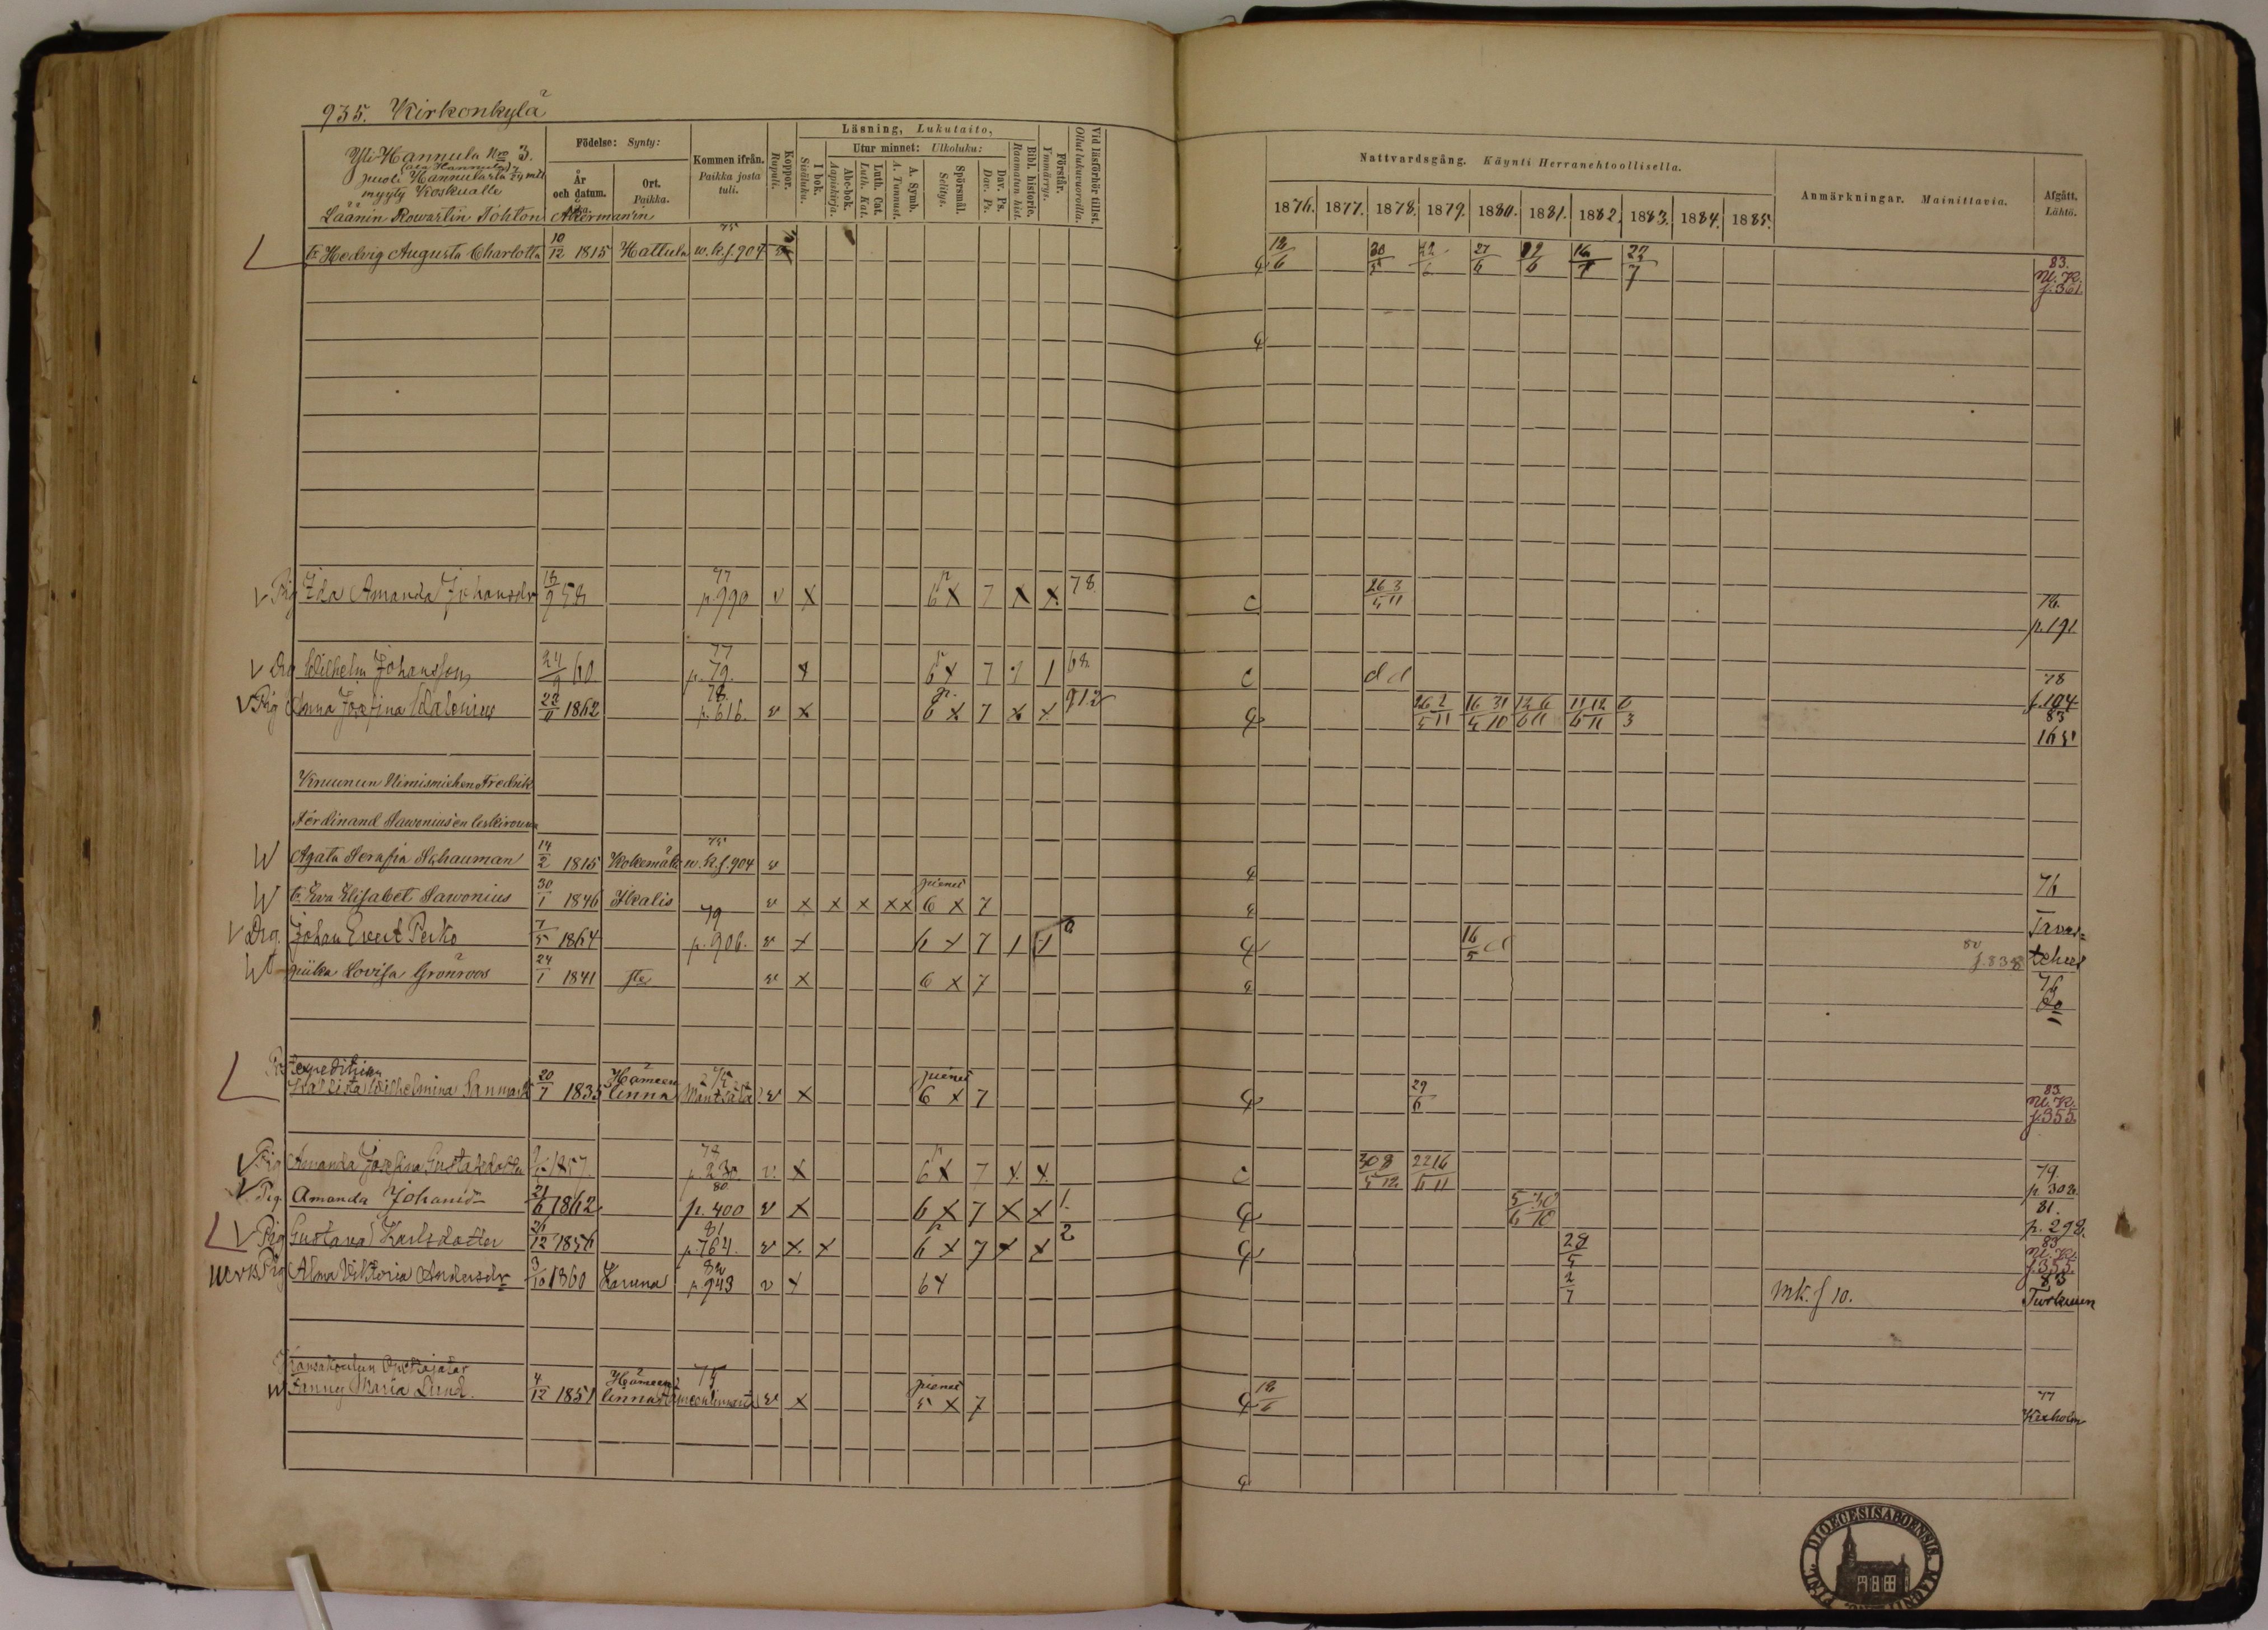 935. Kirkonkylä
Yli Hannula Nro 3.
puoli Hannulasta 7/24 mtl
myyty Koskualle
Läänin Rowastin Tohton Åkerman'in
Födelse: Synty:
År och datum. Aika.
Ort. Paikka.
Kommen ifrån. Paikka josta tuli.
Koppor. Rupuli.
Läsning, Lukutaito,
I bok. Sisäluku.
Utur minnet: Ulkoluku:
Abc-bok. Aapiskirja.
Luth. Cat. Luth. Kat.
A. Symb. A. Tunnust.
Spörsmål. Selitys.
Dav. Ps. Dav. Ps.
Bibl. historie. Raamatun hist.
Förstår. Ymmärrys.
Vid läsförhör tillst. Ollut lukuvuoroilla.
Nattvardsgång. Käynti Herranehtoollisella.
1876. 1877. 1878. 1879. 1880. 1881. 1882. 1883. 1884. 1885.
Anmärkningar. Mainittavia.
Afgått. Lähtö.
fr Hedvig Augusta Charlotta 10/12 1815 Hattula 75 w.k.f. 904 12/6 30/5 27/6 16/7 22/7 83. Nl. K. f. 361.
Pig Ida Amanda Johansdr 77 p 990 v X 6 X 7 X X 78. 26 3/5 11 p. 191.
Drg Wilhelm Johansson 24/9 60 77 p. 79. x 6 x 7 1 1 d d 78 f. 104
Pig Anna Josefina Walenius 22/11 1862 78. p. 616. v x 6 x 7 x x 912 26 2/5 11 16 31/5 10 12 6/6 11 11 12/6 11 6/3 83 165
Kruunun Nimismiehen Fredrik
Ferdinand Sawonius'en leskirouwa
Agata Serafia Schauman 14/2 1815 Kokemäki 75 w.k.f. 904 v 76
fr Eva Elisabet Sawonius 30/1 1846 Ikalis v x x x x x pienet 6 x 7 Tavas=
Drg. Johan Evert Perko 7/5 1864 79 p. 906. v x 6 x 7 1 1 16/5 d f. 838 tehus
piika Lovisa Grönroos 24/1 1841 v x 6 x 7 76 Do
Expeditören
Kallista Wilhelmina Sanmark 20/7 1835 Hämeen linna Mäntsälä v x pienet 6 x 7 29/6 83. Nl. K. f. 355.
Pig Amanda Josefina Gustafsdotter 1857. 78 p 230. v. X 6 X 7 X. X. 30 8/5 12 22 16/6 11 79. p. 302.
Pig. Amanda Johansdr 21/6 1862 80. p. 400 v X 6 X 7 X X 1. 5 30/6 10 81. p. 292.
Pig Gustava Karlsdotter 26/12 1856 81 p. 764. v x. x 6 x 7 x x 2 28/5 83 Nl. K. f. 355.
Pig Alma Viktoria Andersdr 3/10 1860 Karuna 82 p 943 v x 6 x 2/7 mk. f 10. 83 Turkuun
Kansakoulun Opettajatar
Fanny Maria Lund. 4/12 1851 Hämeen linna 75 Hämeenlinnasta v x pienet 5 x 7 18/6 77 Kexholm
FINL. DIOECESIS ABOENSIS. MAGNI DUC.